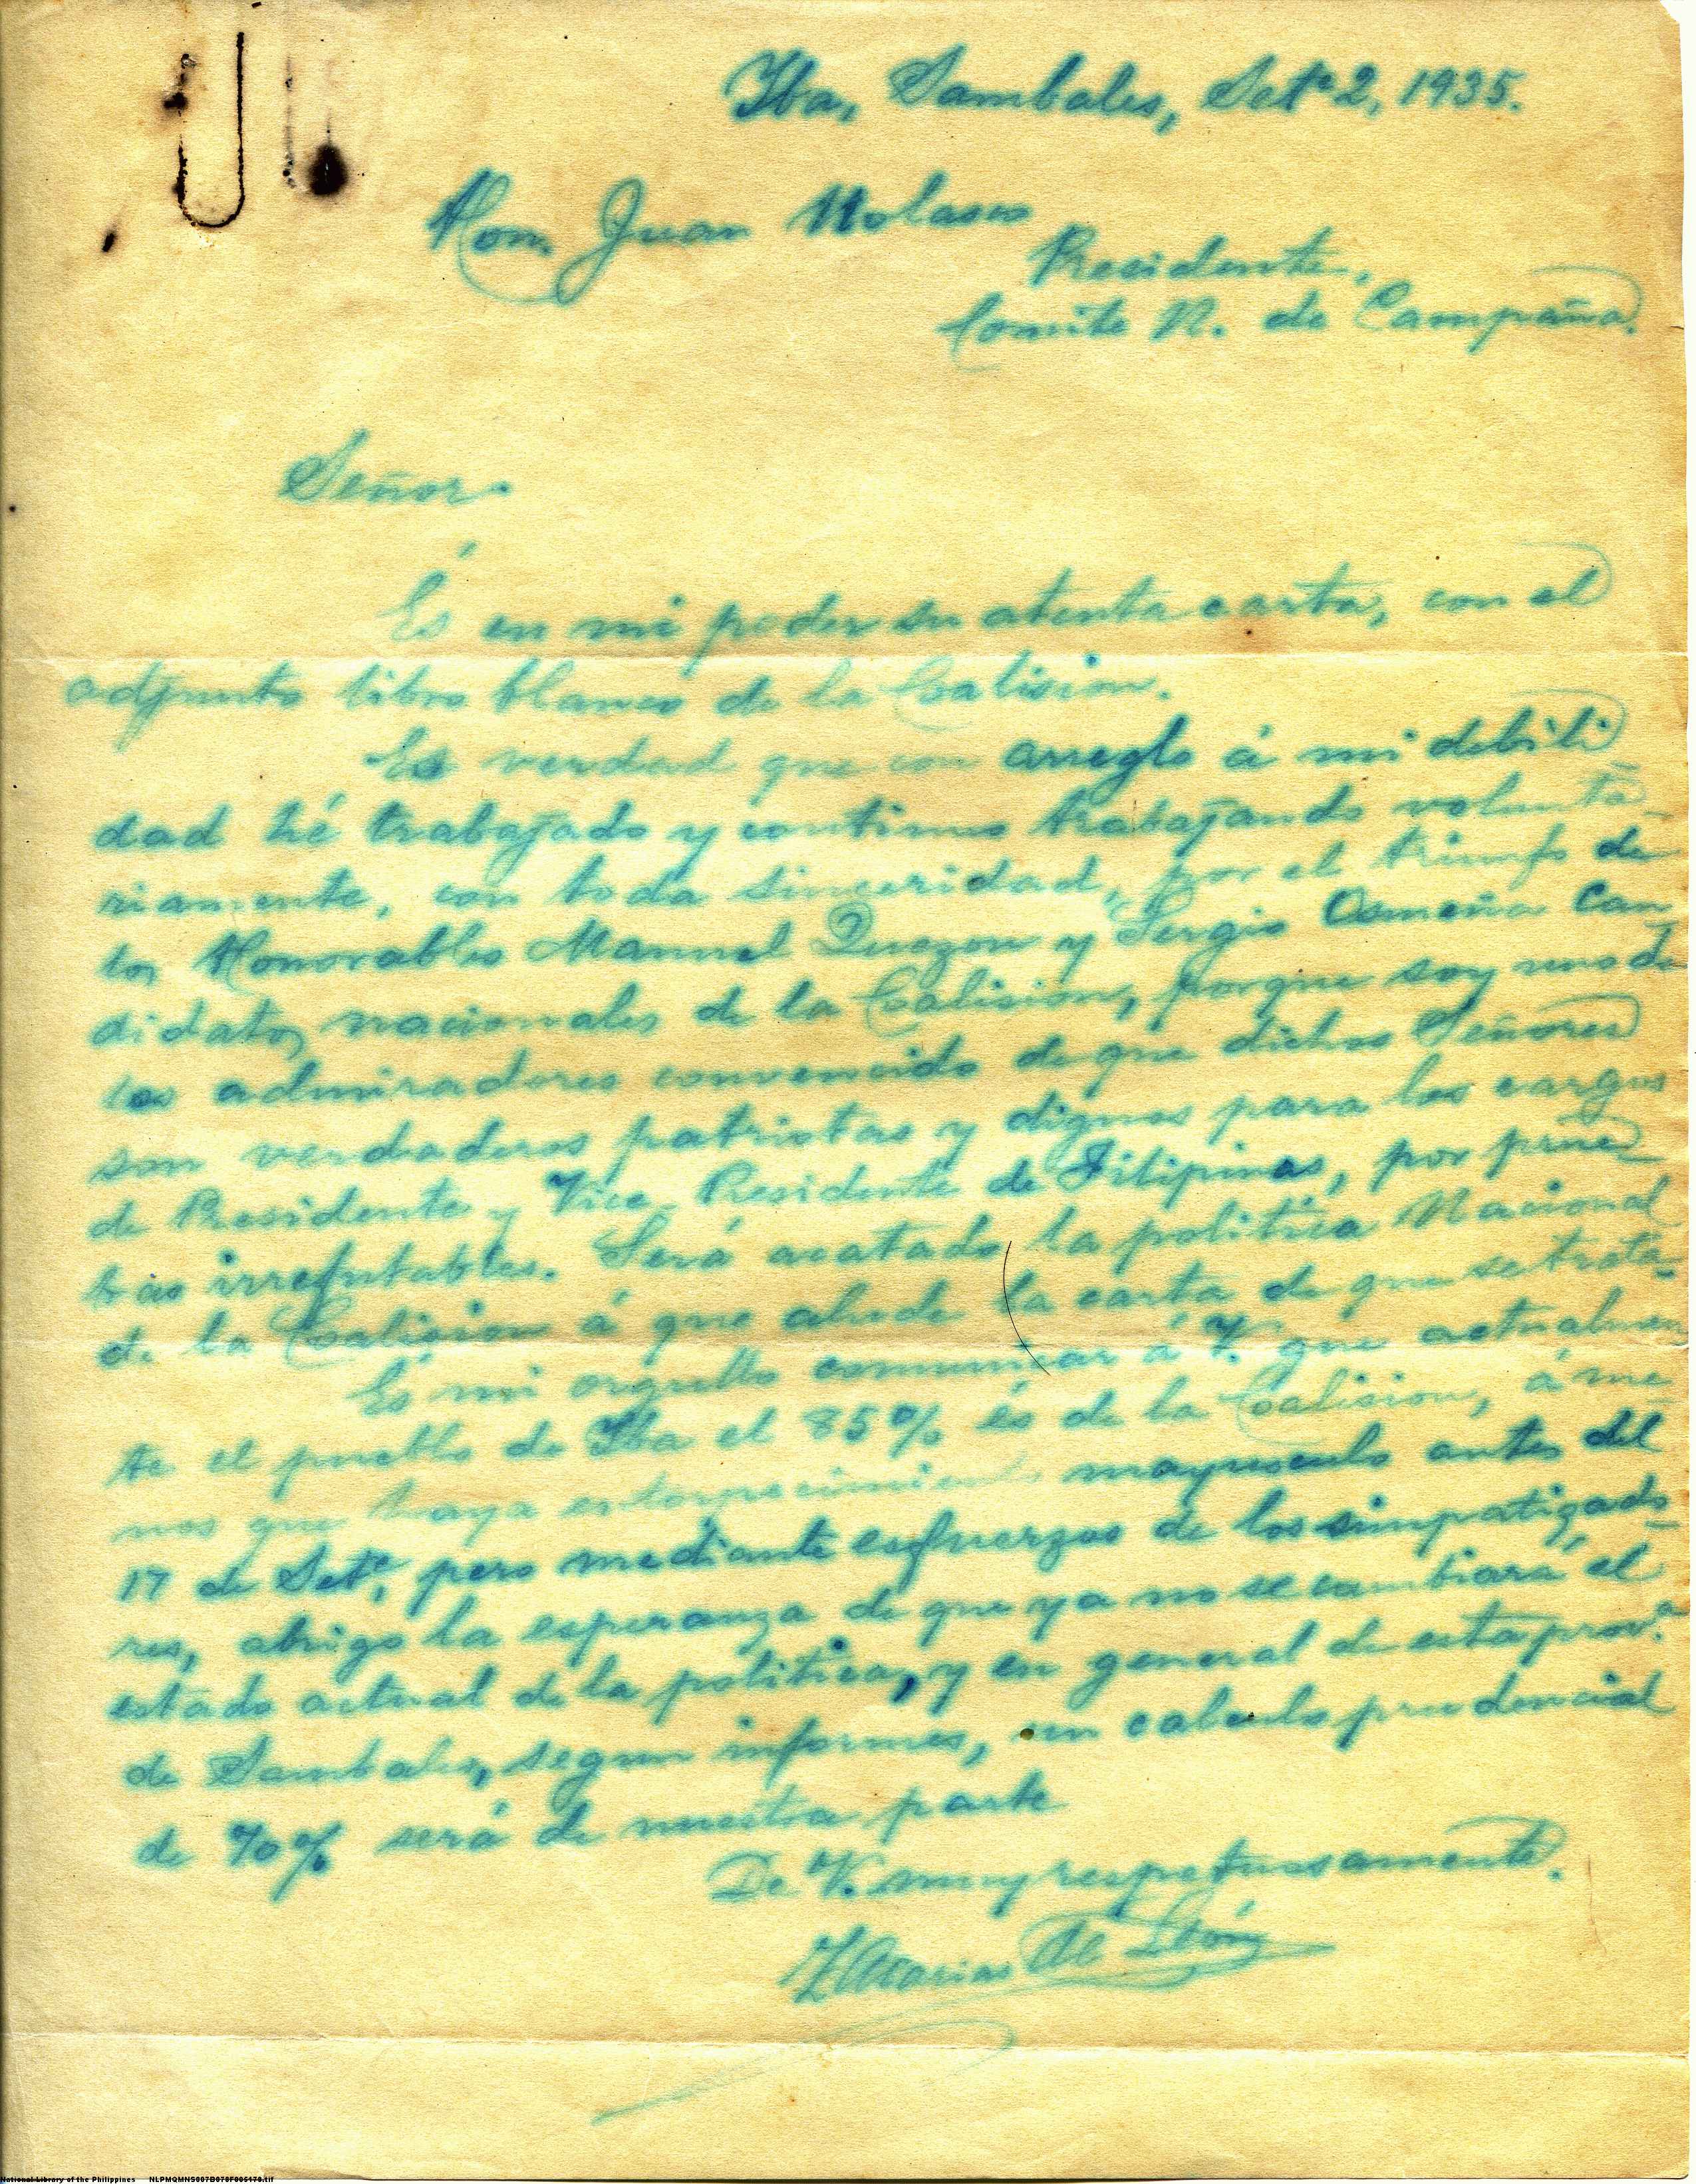 Iba, Sambales, Sete 2, 1935.
Hon. Juan Nolasco
Presidente,
Comite N. de Campaña.
Señor.
És en mi poder su atenta carta, con el
adjunto libro blanco de la Coalision.
Es verdad que con arreglo á mi debili
dad hé trabajado y continuo trabajando volunta-
riamente, con toda sinceridad, por el triunfo de
los Honorables Manuel Quezon y Sergio Osmeña Can
didatos nacionales de la Coalision, porque soy uno de
los admiradores convencido de que dichos Señores
son verdaderos patriotas y dignos para los cargos
de Presidente y Vice-Presidente de Filipinas, por prue
bas irrefutables. Será acatado la politica Nacional
de la Coalision á que alude la carta de que se trata.
Es mi orgullo comunicar á V. que actualmen
te el pueblo de Iba el 85% és de la Coalision, á me-
nos que haya entorpecimiento mayusculo antes del
17 de Sete, pero mediante esfuerzos de los simpatizado-
res, abrigo la esperanza de que ya no se cambiará el
estado actual de la politica, y en general de esta prov.a
de Sambales, segun informes, un calculo prudencial
de 70% será de nuestra parte
De V. muy respetuosamente.
Macario de León
National Library of the Philippines NLPMQMNS007B078F006170.tif